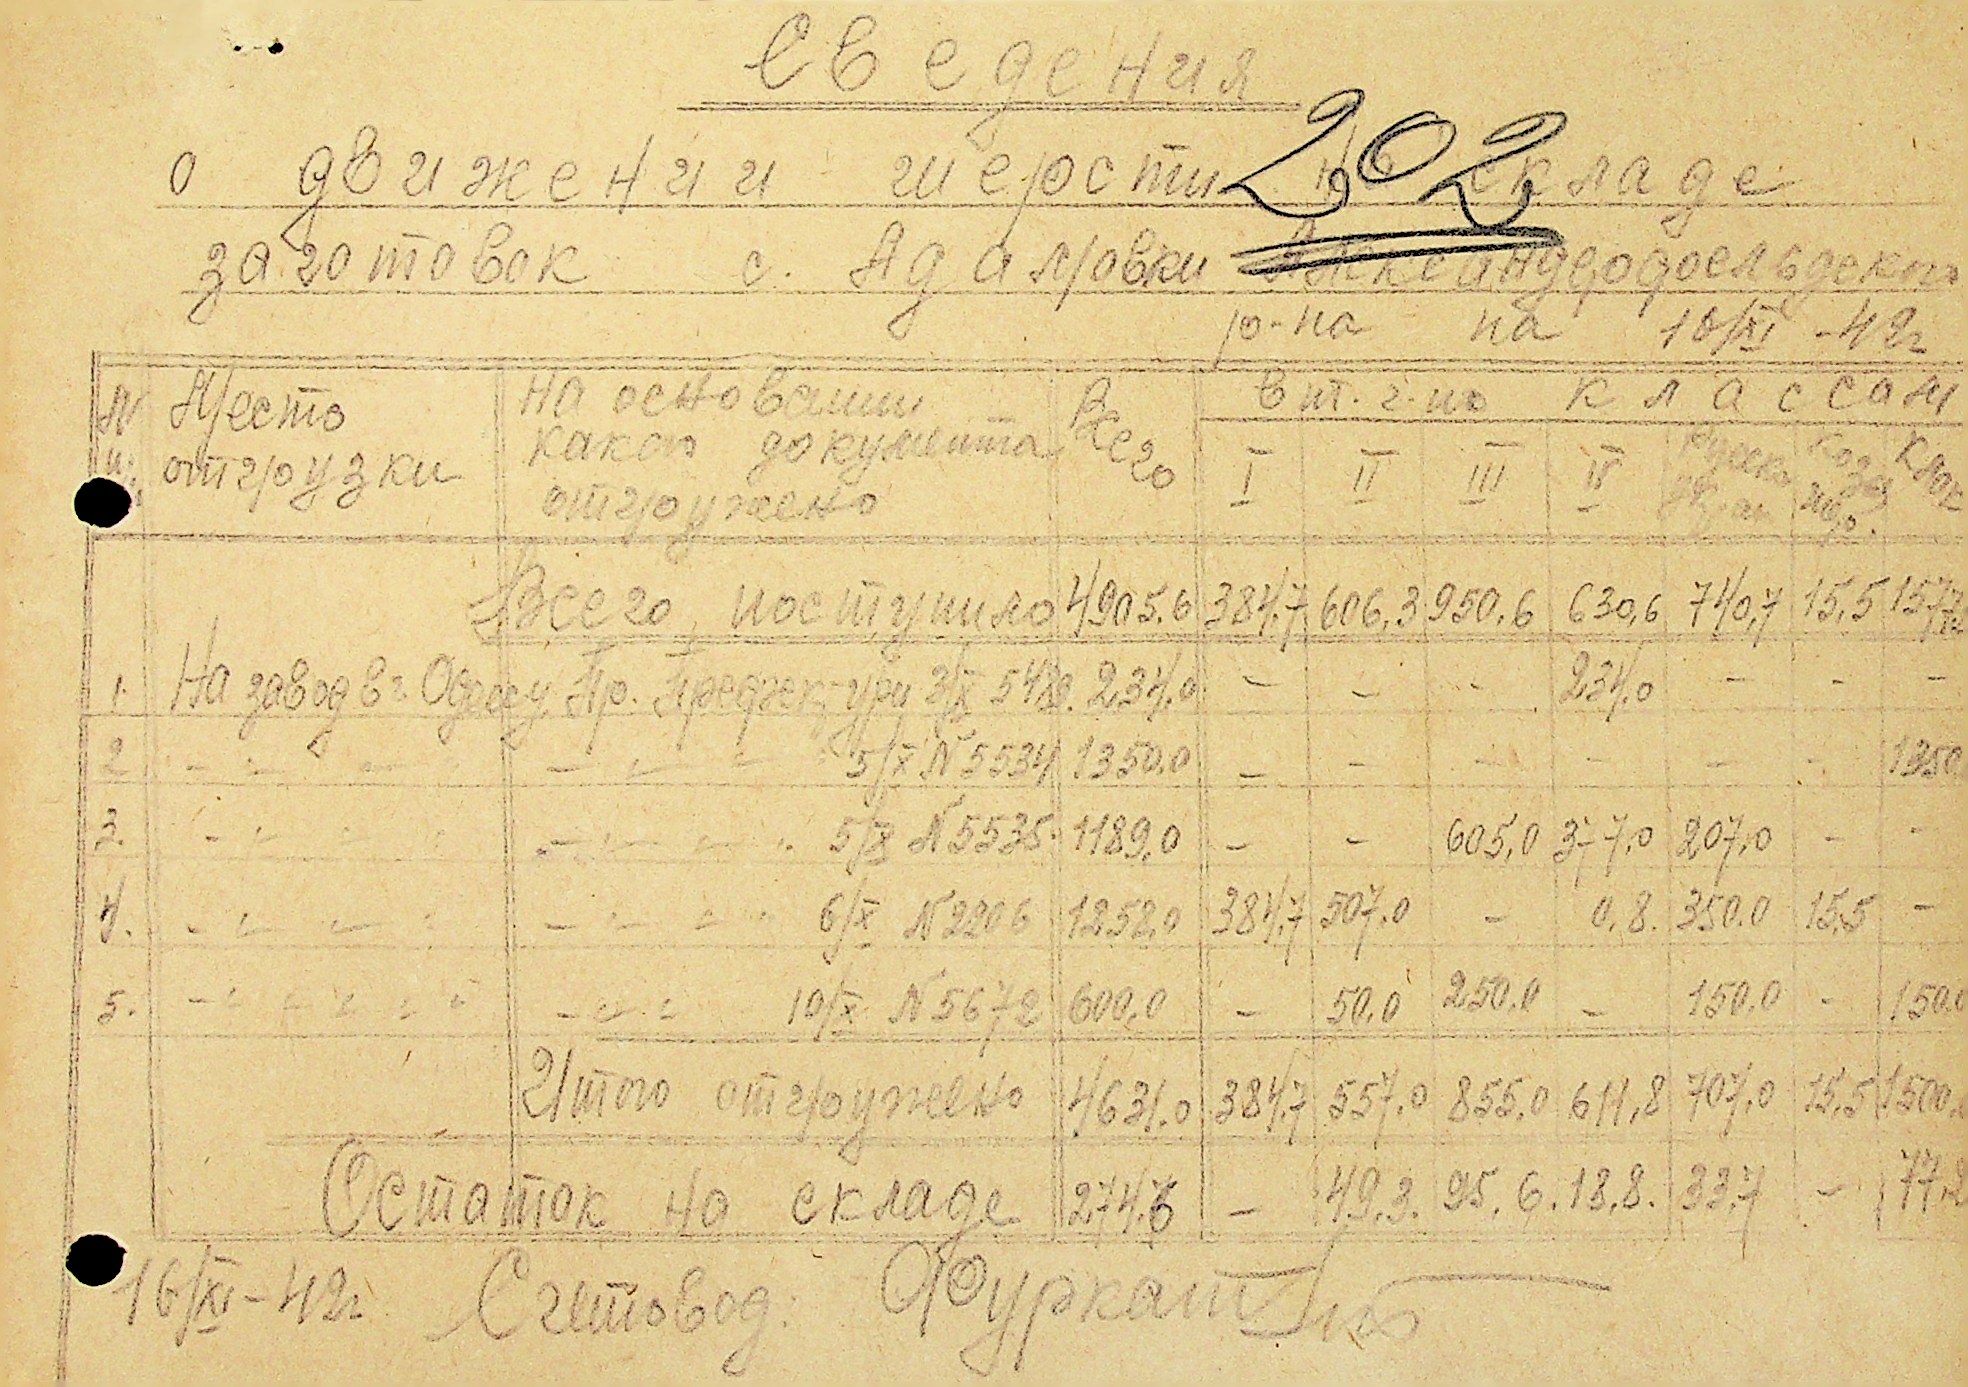 Сведения
202
о движении шерсти на складе
заготовок с. Адамовки
р-на на 10/XI -42г
Место отгрузки
На основании какого документа отгружено
Всего
в т. ч. по классам
I II III IV Клок
Всего поступило 4905.6 384,7 606,3 950.6 630,6 740,7 15,5 1577,2
1. На завод в г. Одессу Пр. 3/X 234,0 - - - 234,0 - - -
2 - " - " - " 5/X N 5534 1350.0 - - - - - - 1350
3. - " - " - " 5/X N 5535 1189,0 - - 605,0 377,0 207,0 - -
4. - " - " - " 6/X N 2206 1258,0 384,7 507,0 - 0,8. 350.0 15,5 -
5. - " - " - " 10/X N 5672 600,0 - 50,0 250.0 - 150.0 - 150.0
Итого отгружено 4631.0 384,7 557,0 855,0 611,8 707,0 15,5 1500,
Остаток на складе 274.6 - 49.3. 95.6. 18,8. 33,7 - 77,2
16/XI -42г Счетовод. Фуркат